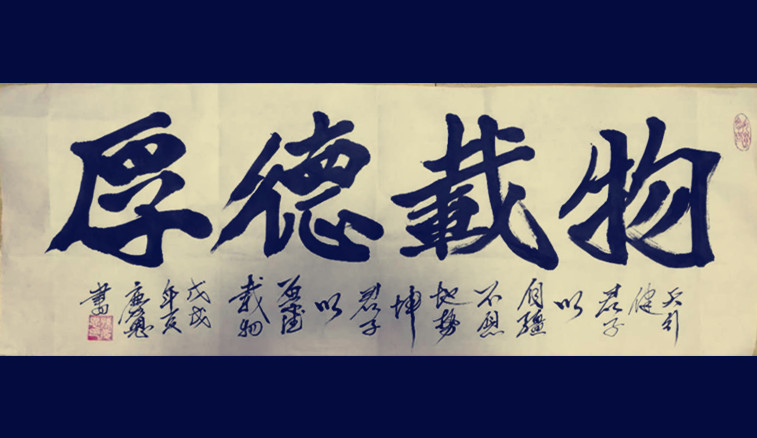 厚德載物
天行
健
君子
以
自彊
不息
地勢
坤
君子
以
厚德
載物
戊戌
書